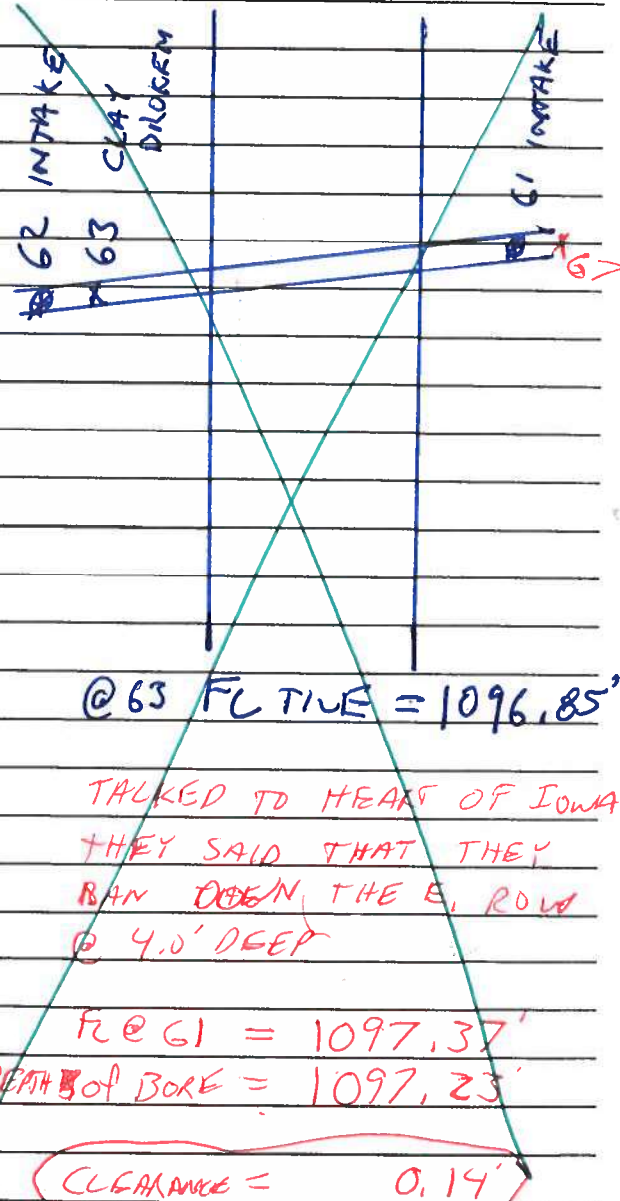 62 INTAKE
63 CLAY
BROKEN
61 INTAKE
67
@ 63 FL TILE = 1096.85'
TALKED TO HEART OF IOWA
THEY SAID THAT THEY
RAN DOWN THE E. ROW
@ 4.0' DEEP
FL @ 61 = 1097.37'
DEPTH of BORE = 1097.23'
CLEARANCE = 0.14'